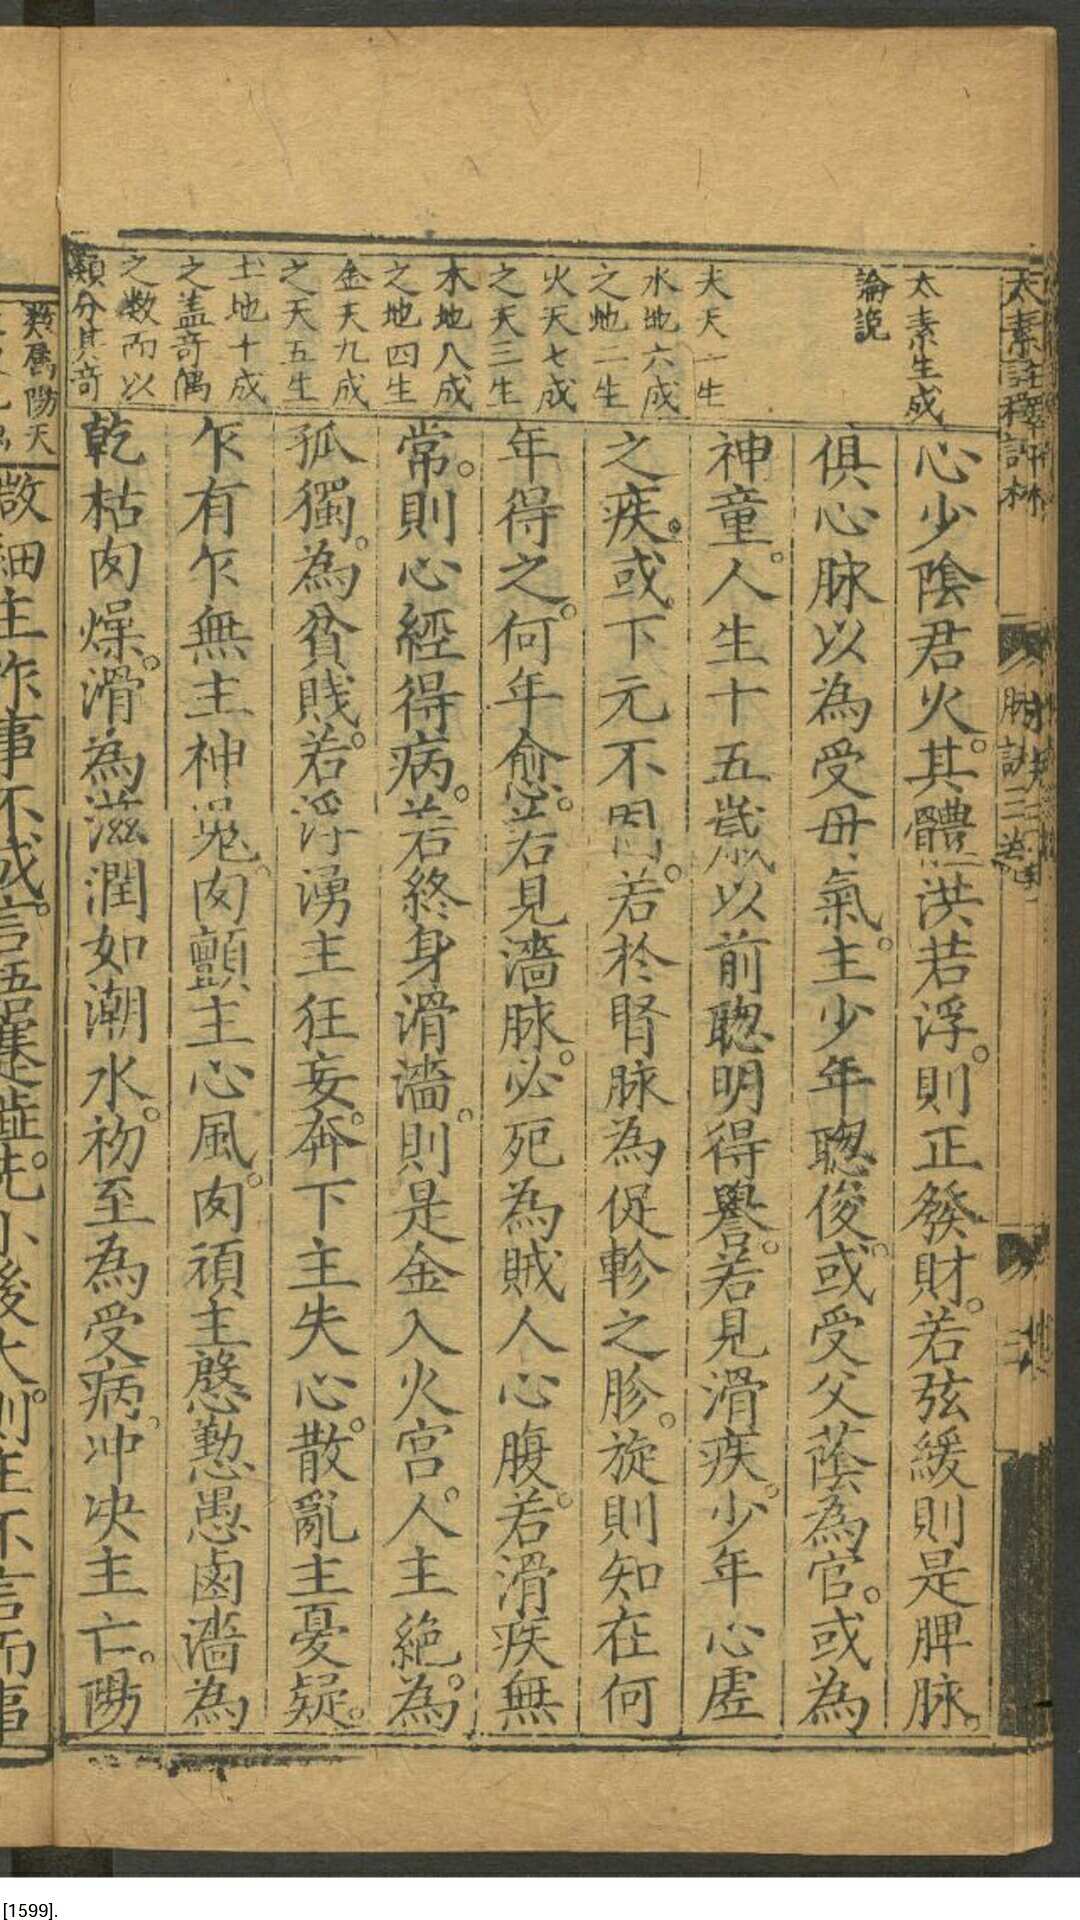 太素生成
論說
夫天一生
水地六成
之地二生
火天七成
之天三生
木地八成
之地四生
金天九成
之天五生
土地十成
之蓋奇偶
之数而以
類分其奇
心少陰君火其體洪若浮則正發財若弦緩則是脾脉
俱心脉以為受母氣主少年聦俊或受父蔭為官或為
神童人生十五歲以前聦明得譽若見滑疾少年心虗
之疾或下元不固若於腎脉為促軫之胗旋則知在何
年得之何年愈若見濇脉必死為賊人心腹若滑疾無
常則心經得病若終身滑濇則是金入火宮人主絕為
孤獨為貧賤若浮湧主狂妄奔下主失心散亂主憂疑
乍有乍無主神鬼肉顫主心風肉頑主慇懃愚鹵濇為
乾枯肉燥滑為滋潤如潮水初至為受病冲决主亡陽